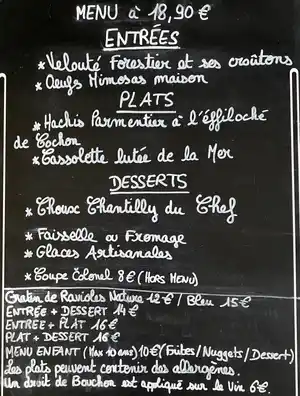 MENU à 18,90 €
ENTRÉES
* Velouté Forestier et ses croûtons
* Oeufs Mimosas maison
PLATS
* Hachis Parmentier à l'éffiloché
de Cochon
* Cassolette lutée de la Mer
DESSERTS
* Choux Chantilly du Chef
* Faisselle ou Fromage
* Glaces Artisanales
* Coupe Colonel 8€ (HORS MENU)
Gratin de Ravioles Nature 12€ / Bleu 15€
ENTRÉE + DESSERT 14€
ENTRÉE + PLAT 16€
PLAT + DESSERT 16€
MENU ENFANT (Max 10 ans) 10€ (Frites/Nuggets/Dessert)
les plats peuvent contenir des allergènes.
Un droit de Bouchon est appliqué sur le Vin 6€.